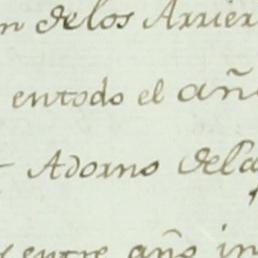 n de los Arrier
entodo el año
Adorno dela
y entre año in